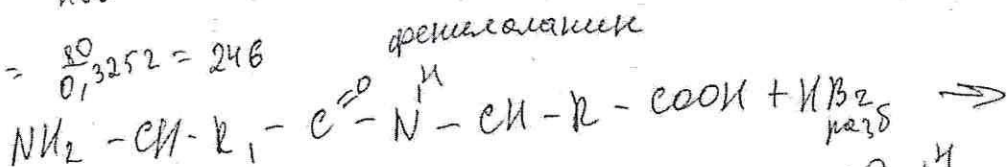 = 80/0,3252 = 246
фенилаланин
NH₂ - CH - R₁ - C=O - N H - CH - R - COOH + HBr →
разб